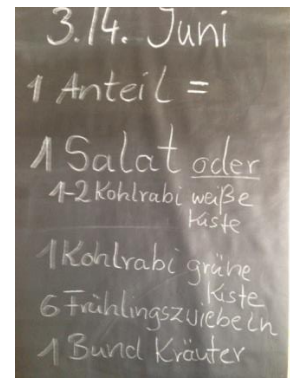 3./4. Juni
1 Anteil =
1 Salat oder
1-2 Kohlrabi weiße
Kiste
1 Kohlrabi grüne
Kiste
6 Frühlingszwiebeln
1 Bund Kräuter